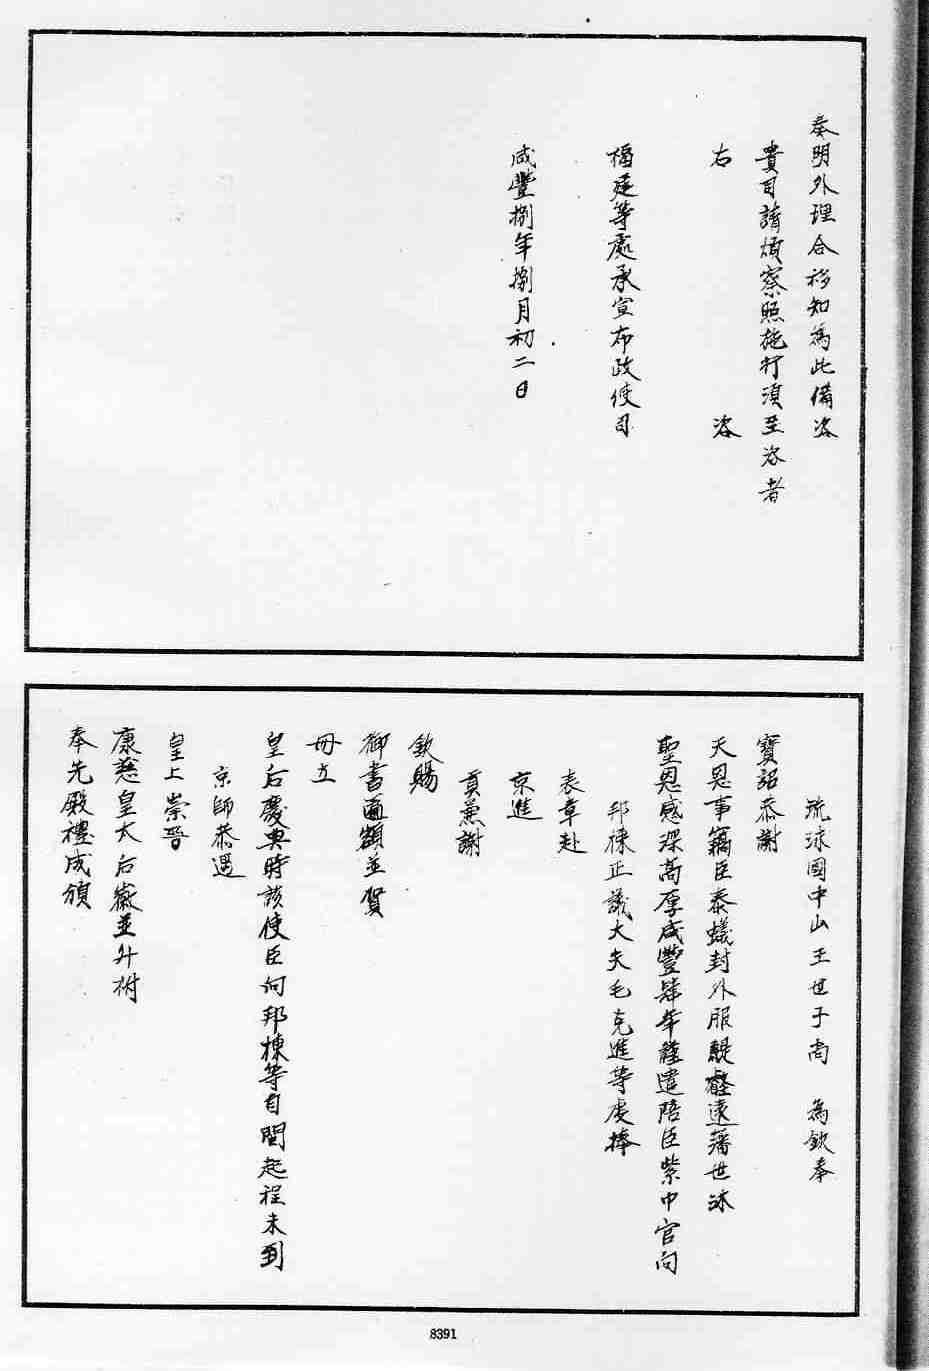 奏明外理合移知為此備咨
貴司請煩察照施行須至咨者
右　咨
福建等處承宣布政使司
咸豐捌年捌月初二日
琉球國中山王世子尚　為欽奉
寶詔恭謝
天恩事竊臣泰蟻封外服鯷壑遠藩世沐
聖恩感深高厚咸豐肆年謹遣陪臣紫巾官向
邦棟正議大夫毛克進等虔捧
表章赴
京進
貢兼謝
欽賜
御書匾額並賀
冊立
皇后慶典時該使臣向邦棟等自閩起程未到
京師恭遇
皇上崇晉
康慈皇太后徽並升祔
奉先殿禮成頒
8391